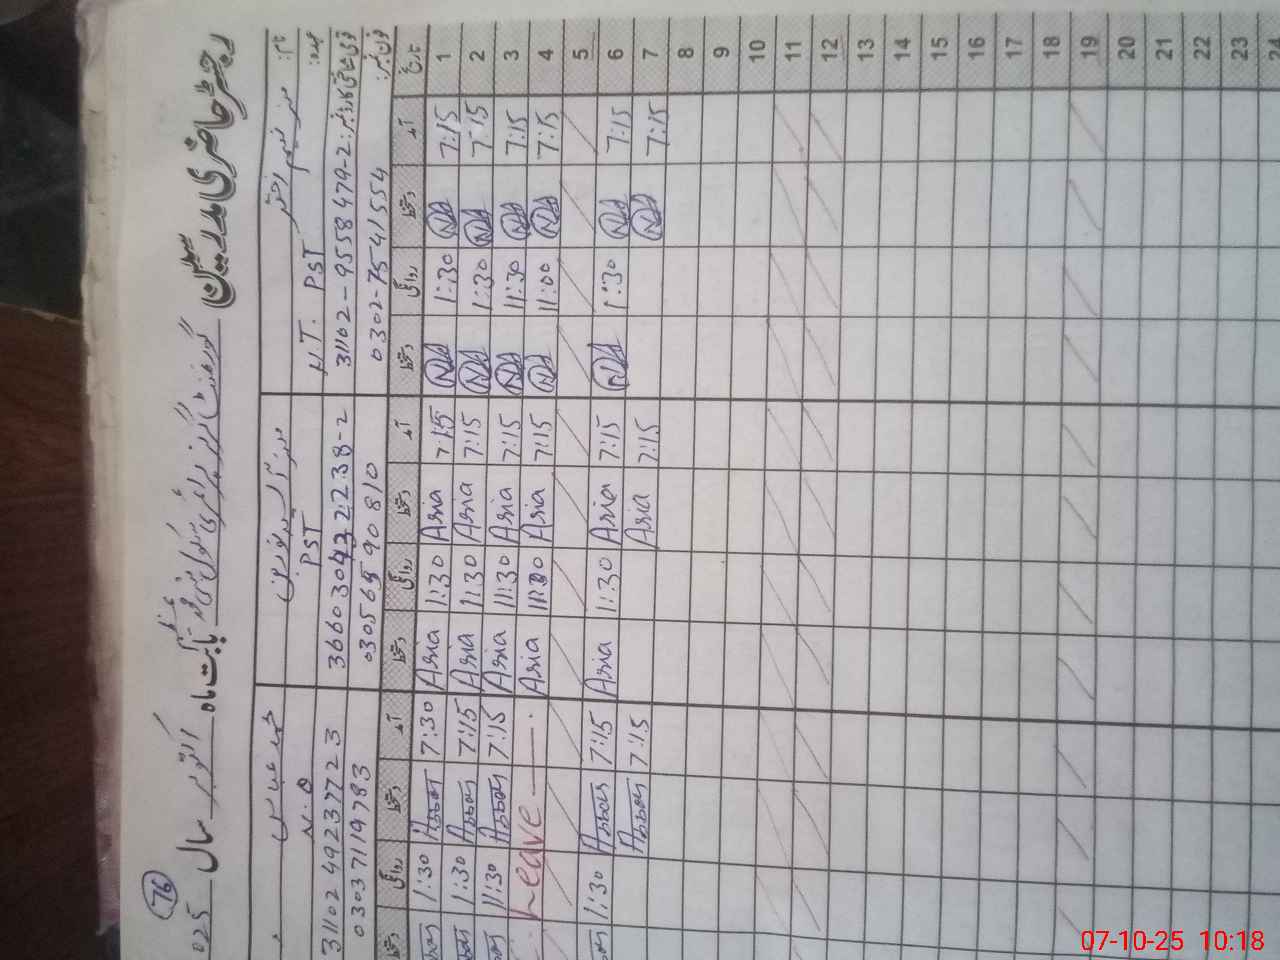 76
رجسٹر حاضری مدرسین گورنمنٹ گرلز بابت ماہ اکتوبر سال 025
نام: مسز نسیم اختر
عہدہ: N.T. PST
قومی شناختی کارڈ نمبر: 31102-9558479-2
فون نمبر: 0302-7541554
PST
366030432238-2
03056590810
محمد عباس
N.Q
3110249237723
03037119783
تاریخ آمد دستخط روانگی دستخط آمد دستخط روانگی دستخط آمد دستخط روانگی دستخط
1 7:15 1:30 7:15 Asia 1:30 Asia 7:30 Abbas 1:30
2 7:15 1:30 7:15 Asia 1:30 Asia 7:15 Abbas 1:30
3 7:15 11:30 7:15 Asia 11:30 Asia 7:15 Abbas 11:30
4 7:15 11:00 7:15 Asia Asia Leave
5
6 7:15 1:30 7:15 Asia 1:30 Asia 7:15 Abbas 1:30
7 7:15 7:15 Asia 7:15 Abbas
8
9
10
11
12
13
14
15
16
17
18
19
20
21
22
23
24
07-10-25 10:18